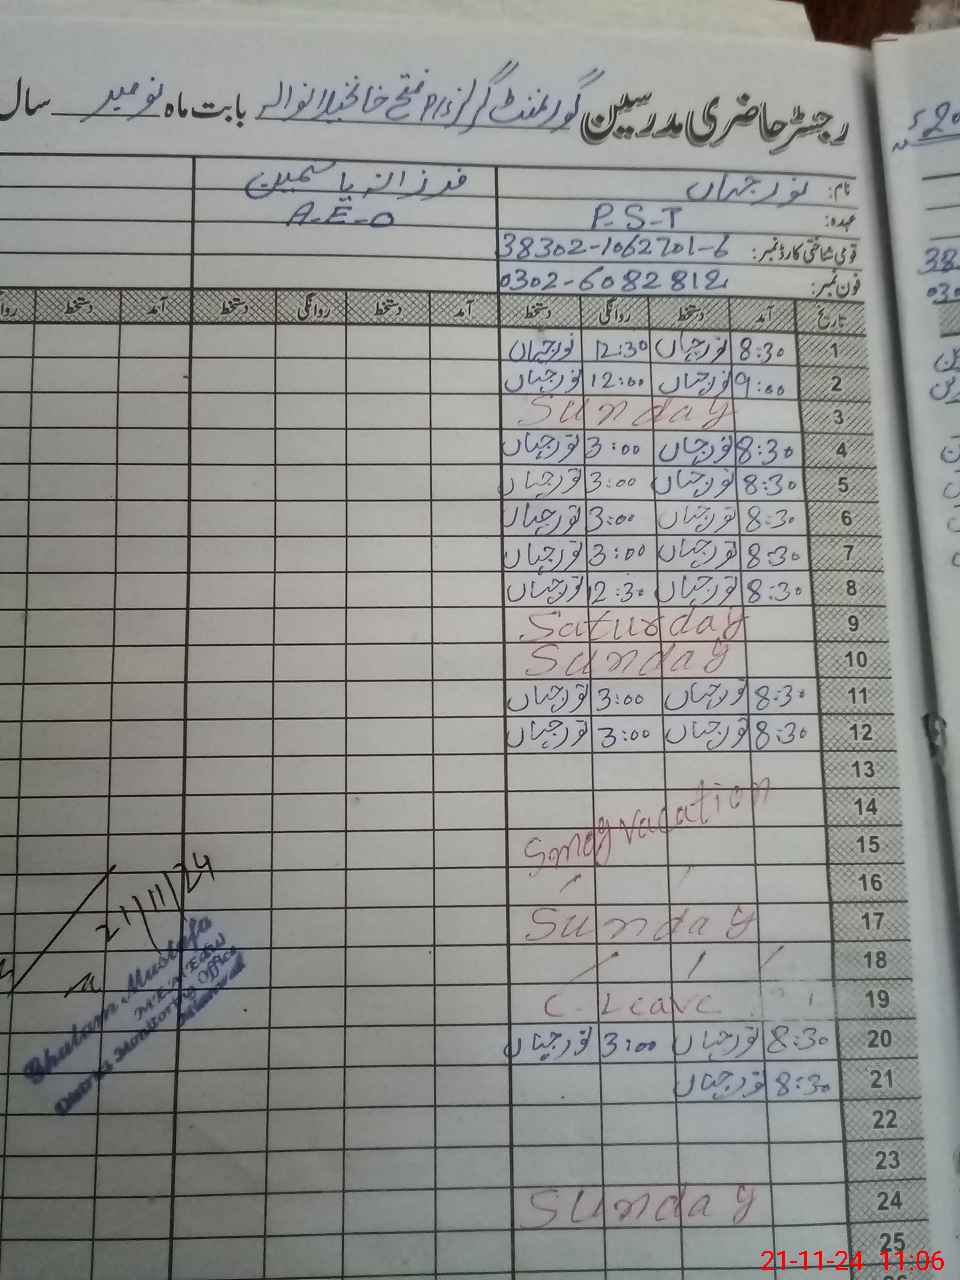 رجسٹر حاضری مدرسین گورنمنٹ گرلز P/S فتح خانخیلانوالہ بابت ماہ نومبر سال
نام: نورجہاں فرزانہ یاسمین
عہدہ: P.S.T A.E.O
قومی شناختی کارڈ نمبر: 38302-1062701-6
فون نمبر: 0302-6082812
تاریخ آمد دستخط روانگی دستخط آمد دستخط روانگی دستخط آمد دستخط
1 8:30 نورجہاں 12:30 نورجہاں
2 9:00 نورجہاں 12:00 نورجہاں
3 Sunday
4 8:30 نورجہاں 3:00 نورجہاں
5 8:30 نورجہاں 3:00 نورجہاں
6 8:30 نورجہاں 3:00 نورجہاں
7 8:30 نورجہاں 3:00 نورجہاں
8 8:30 نورجہاں 12:30 نورجہاں
9 Saturday
10 Sunday
11 8:30 نورجہاں 3:00 نورجہاں
12 8:30 نورجہاں 3:00 نورجہاں
13
14
15 Smog vacation
16
17 Sunday
18
19 C. Leave
20 8:30 نورجہاں 3:00 نورجہاں
21 8:30 نورجہاں
22
23
24 Sunday
25
21/11/24
Ghulam Mustafa
District Monitoring Office
21-11-24 11:06